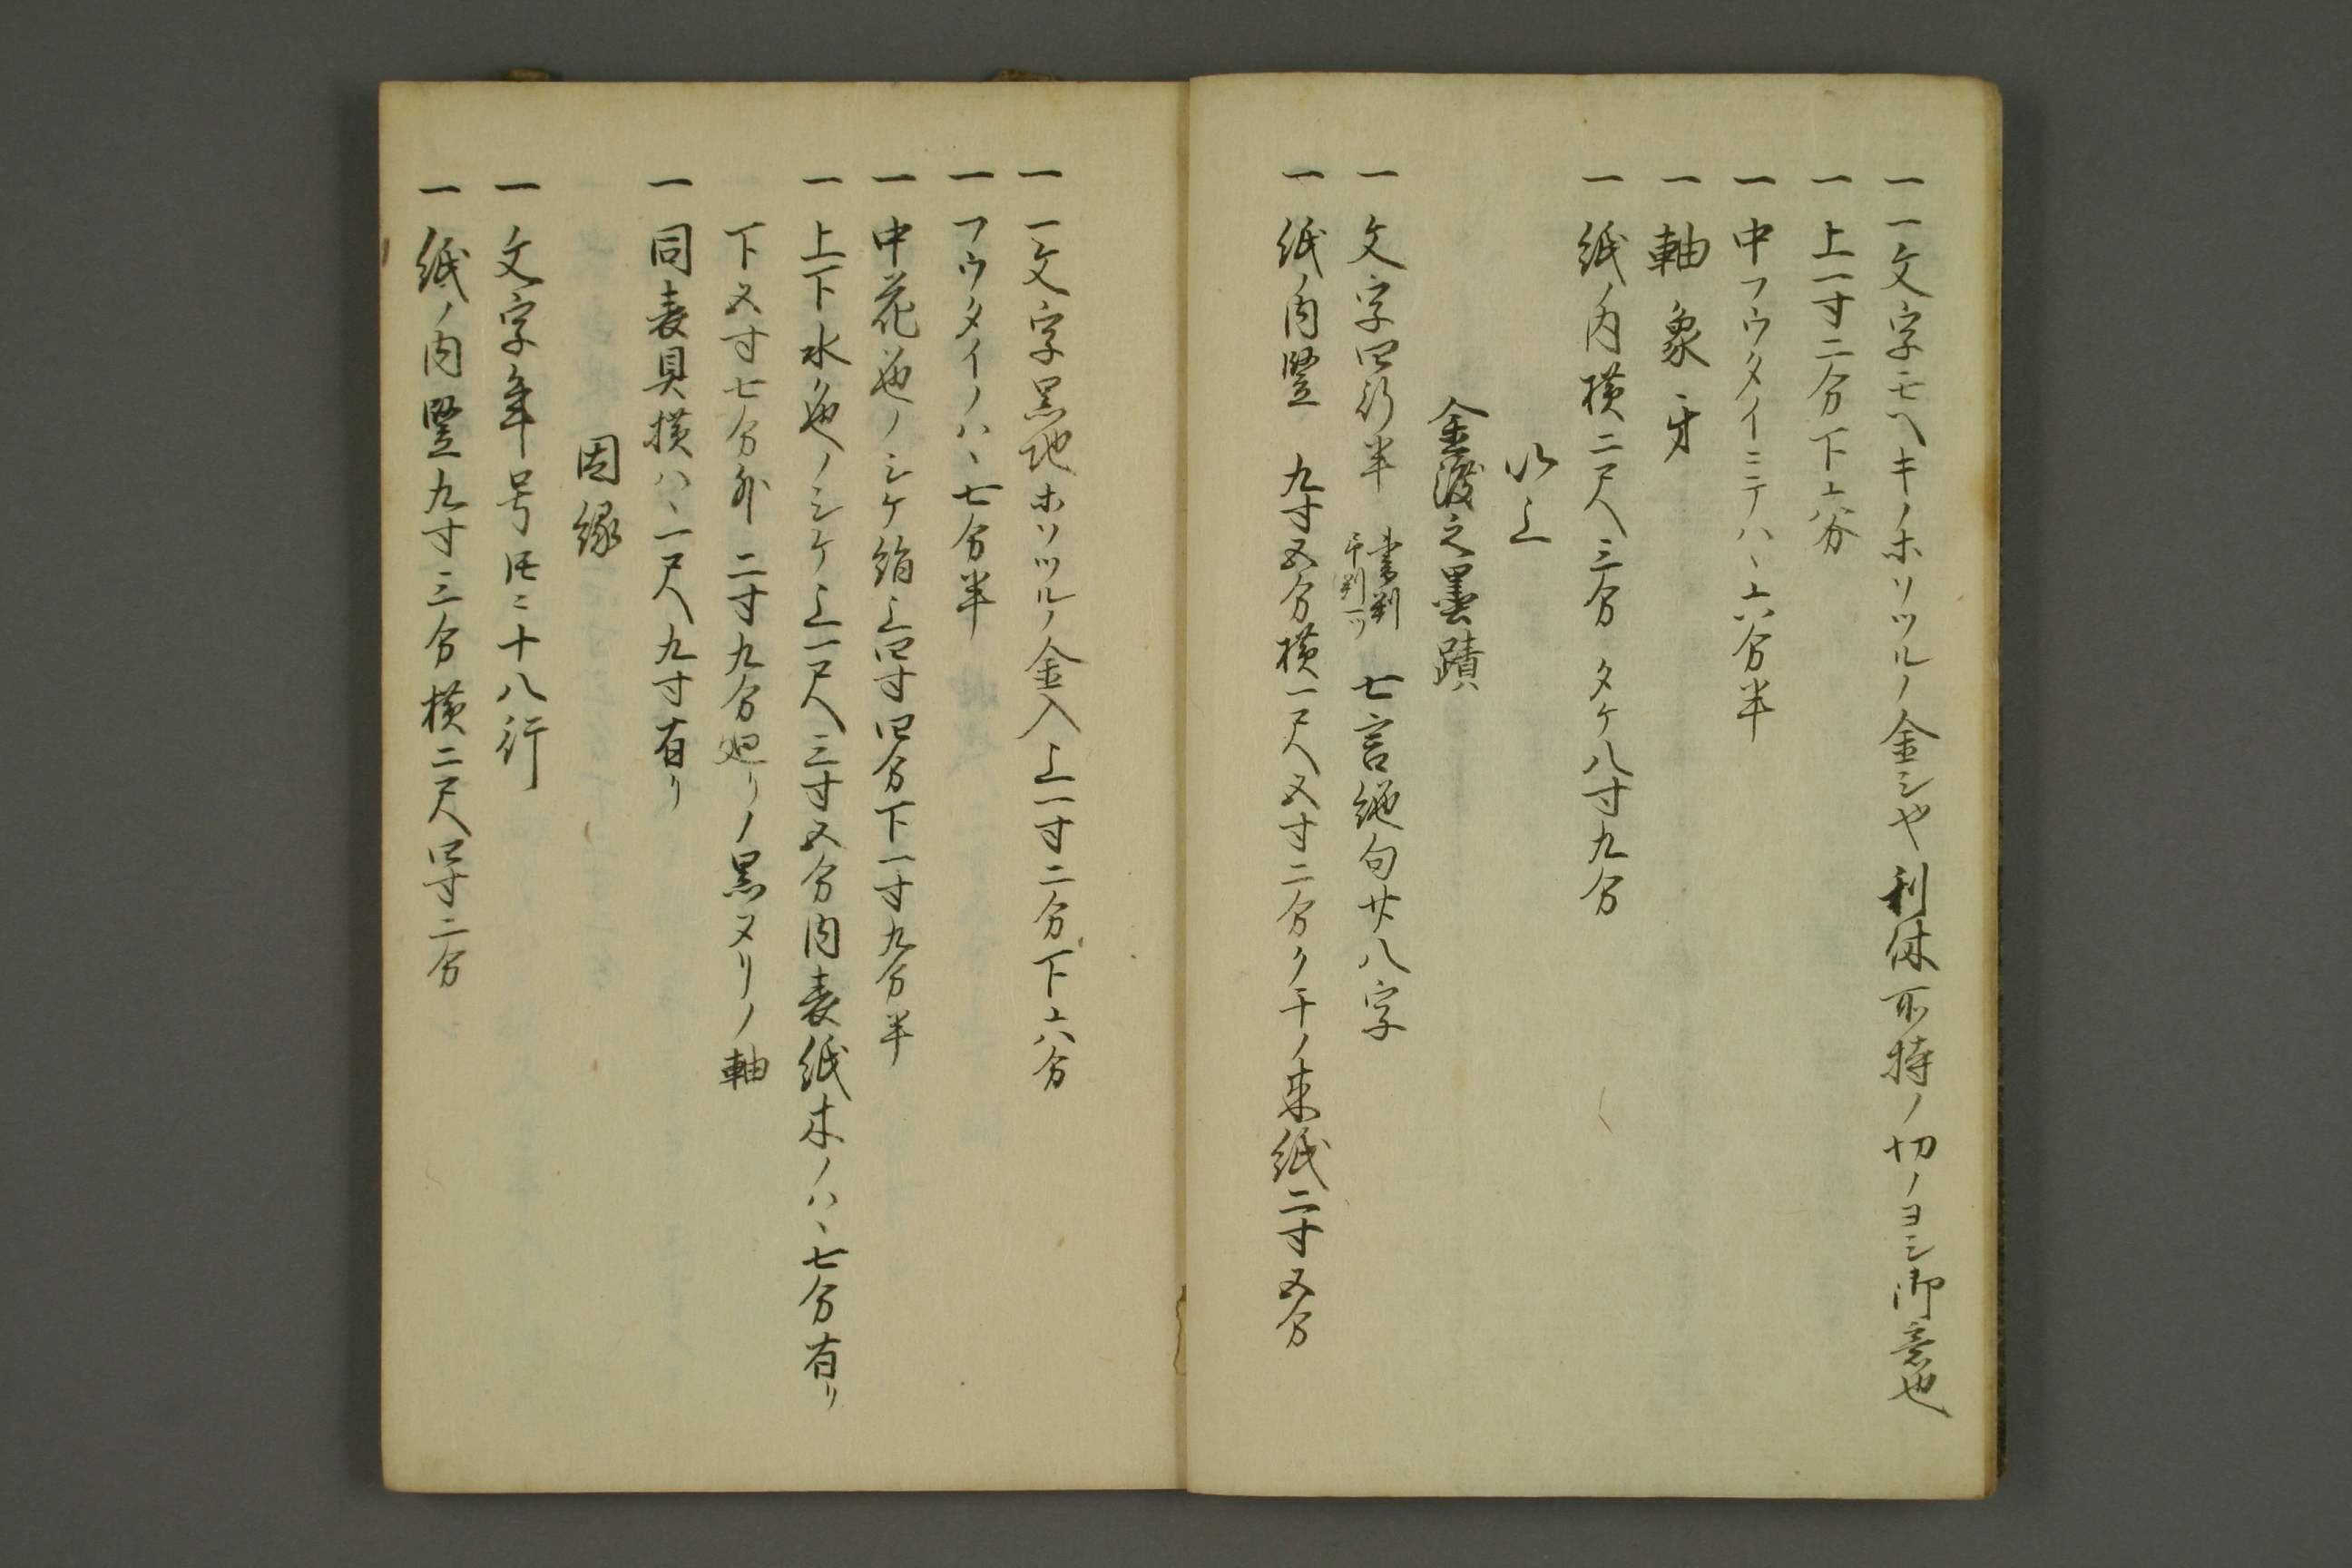 一 一文字モヘキノホソツルノ金シヤ利休所持ノ切ノヨシ御意也
一 上一寸二分下六分
一 中フウタイニテハヽ六分半
一 軸象牙
一 紙ノ内横二尺三分 タケ八寸九分
以上
金渡之墨蹟
一 文字四行半 書判 平判一ツ 七言絶句廿八字
一 紙ノ内竪 九寸五分横一尺五寸二分 紙二寸五分
一 一文字黒地ホソツルノ金入上一寸二分下六分
一 フウタイノハヽ七分半
一 中花色ノシケ絹上四寸四分下一寸九分半
一 上下水色ノシケ上一尺三寸五分内表紙木ノハヽ七分有リ
下五寸七分外 二寸九分廻リノ黒ヌリノ軸
一 同表具横ハヽ一尺九寸有リ
因縁
一 文字年号トモニ十八行
一 紙ノ内竪九寸三分横二尺四寸二分